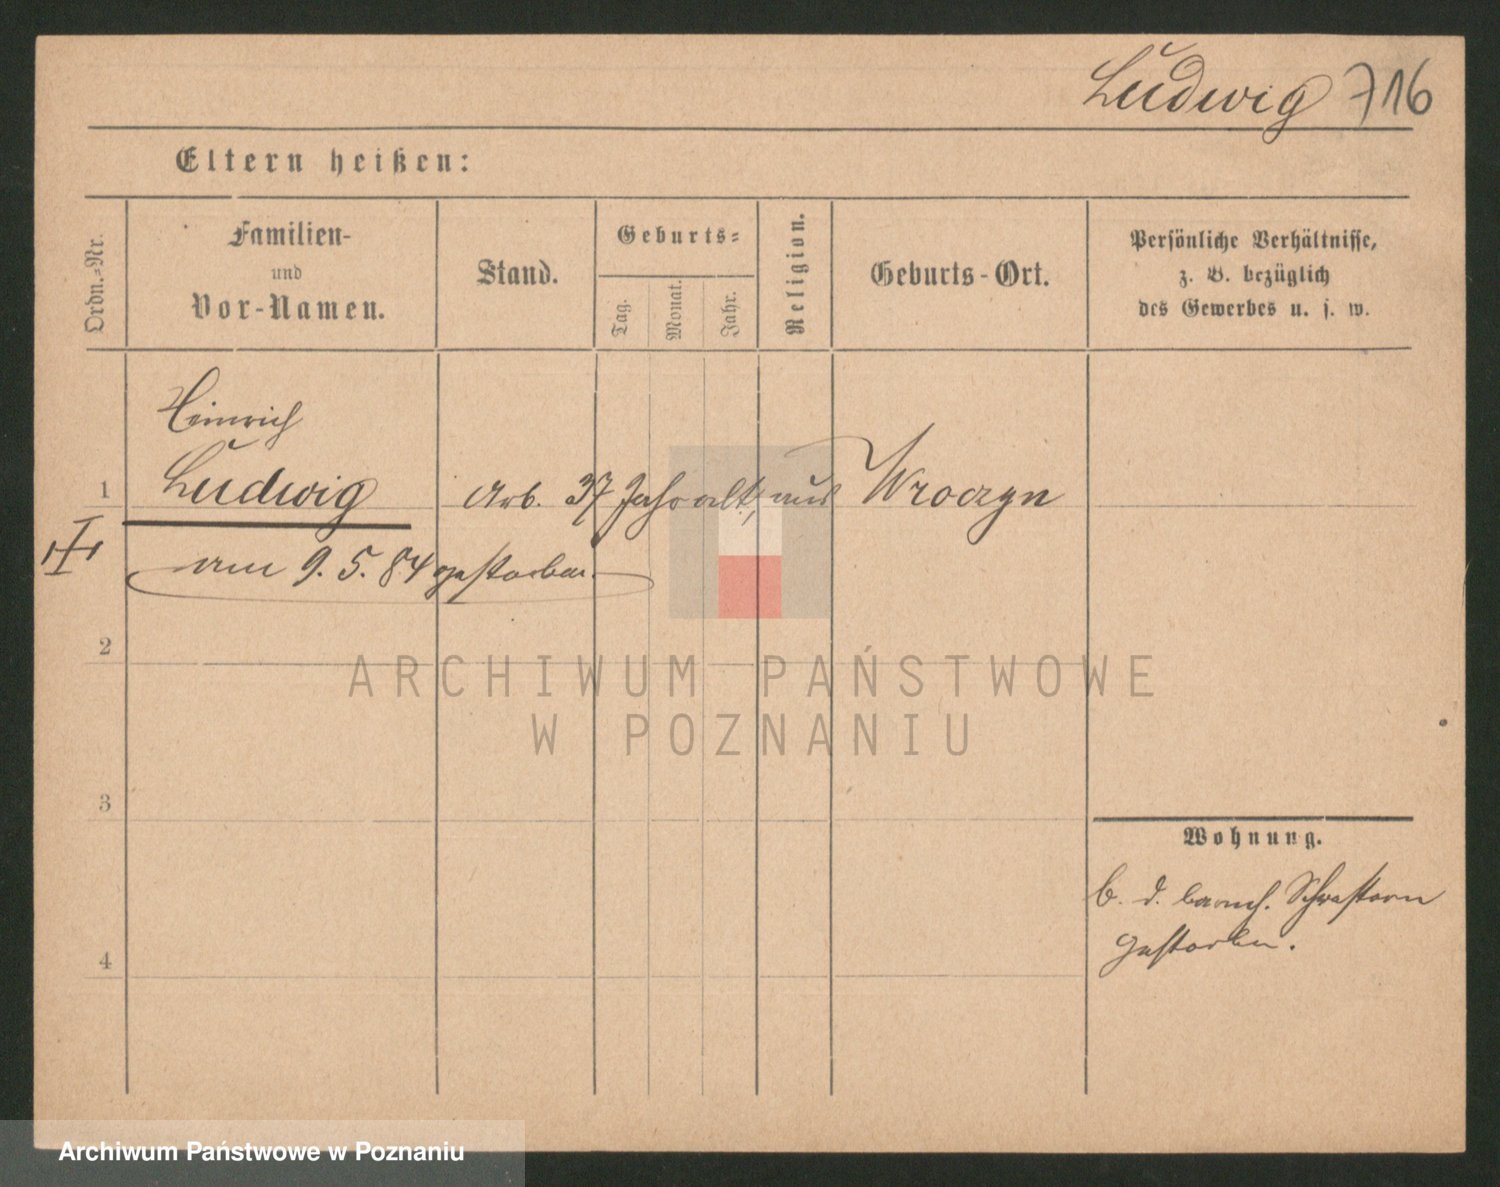 Ludwig 716
Eltern heißen:
Ordn.=Nr.
Familien-
und
Vor-Namen.
Stand.
Geburts=
Tag.
Monat.
Jahr.
Religion.
Geburts-Ort.
Persönliche Verhältnisse,
z. B. bezüglich
des Gewerbes u. s. w.
Heinrich
1 Ludwig Arb. 37 Jahr alt, aus Wroczyn
am 9. 5. 84 gestorben.
2
3
4
Wohnung.
b. d. barmh. Schwestern
gestorben.
ARCHIWUM PAŃSTWOWE
W POZNANIU
Archiwum Państwowe w Poznaniu